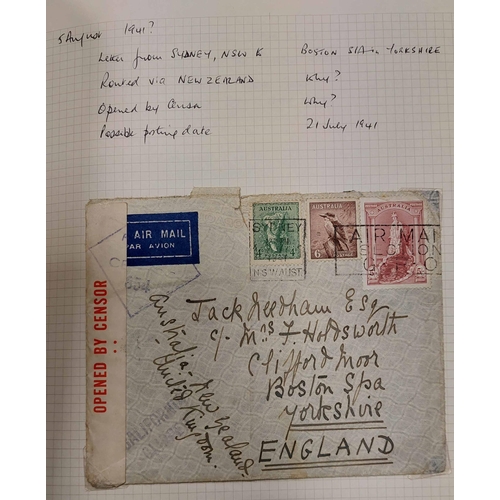 5 August 1941?
Letter from SYDNEY, NSW to BOSTON SPA - YORKSHIRE
Routed via NEW ZEALAND Why?
Opened by Censor Why?
Possible posting date 21 July 1941
AIR MAIL
PAR AVION
OPENED BY CENSOR
AUSTRALIA
AUSTRALIA
6
SYDNEY
N.S.W. AUST
AIR MAIL
G.P.O
Jack Needham Esq
c/- Mrs F. Holdsworth
Clifford Moor
Boston Spa
Yorkshire
ENGLAND
Australia - New Zealand -
United Kingdom.